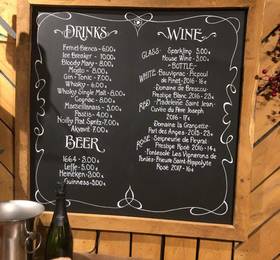 DRINKS
Fernet Branca - 6.00€
Ice Breaker - 10.00€
Bloody Mary - 8.00€
Mojito - 8.00€
Gin + Tonic - 7.00€
Whisky - 6.00€
Whisky Single Malt - 8.00€
Cognac - 8.00€
Pastis - 4.00€
Noilly Prat Spritz - 7.00€
Akvavit 7.00€
BEER
1664 - 3.00€
Leffe - 5.00€
Heineken - 3.00€
Guinness - 5.00€
WINE
GLASS - Sparkling 5.00
House Wine - 3.00
- BOTTLE -
WHITE - Sauvignac - Picpoul
de Pinet - 2016 - 18€
Domaine de Brescou
Prestige Blanc 2016 - 23€
RED - Madeleine Saint Jean
Cuvée du Père Joseph
2016 - 17€
Domaine la Grangette
Part des Anges - 2015 - 23€
ROSÉ - Seigneurie de Peyrat
Prestige Rosé 2016 - 14€
Fontesole Les Vignerons de
Fontès - Prieuré Saint Hippolyte
Rosé 2017 - 16€